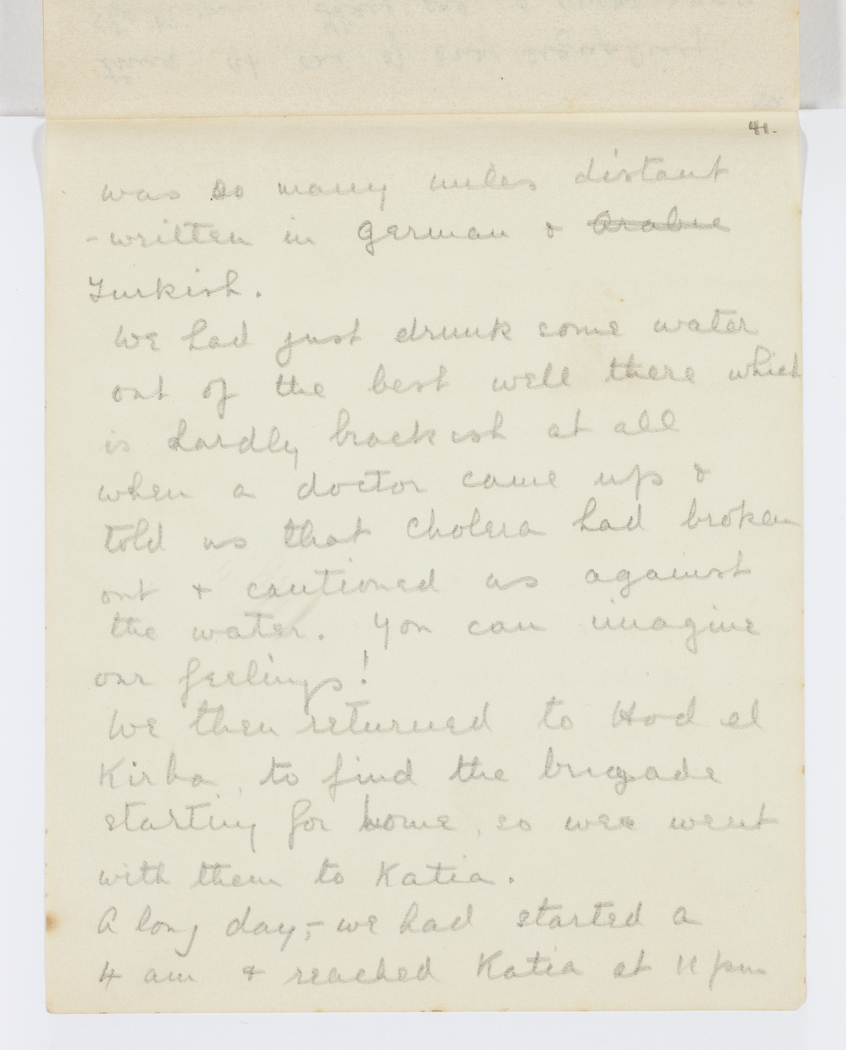 41.
was so many miles distant
- written in German & Arabic
Turkish.
We had just drunk some water
out of the best well there which
is hardly brackish at all
when a doctor came up &
told us that cholera had broken
out & cautioned us against
the water. You can imagine
our feelings!
We then returned to Hod el
Kirba, to find the brigade
starting for home, so wee went
with them to Katia.
A long day, - we had started a
4 am & reached Katia at 11 pm